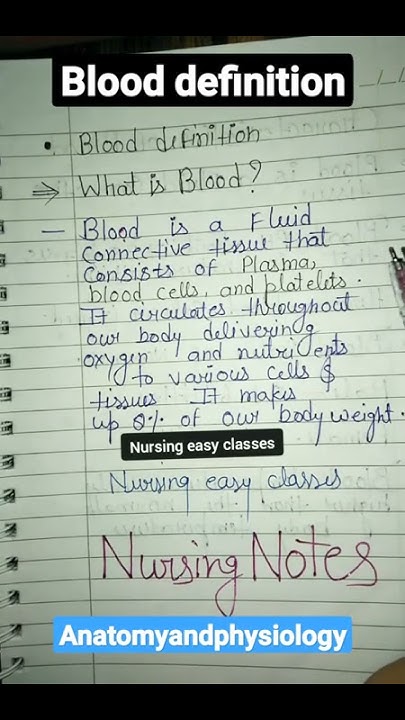 Blood definition
• Blood definition
⇒ What is Blood?
— Blood is a Fluid
Connective tissue that
Consists of Plasma,
blood cells, and platelets.
It circulates throughout
our body delivering
oxygen and nutrients
to various cells &
tissues. It makes
up 8% of our body weight.
Nursing easy classes
Nursing easy classes
Nursing Notes
Anatomyandphysiology